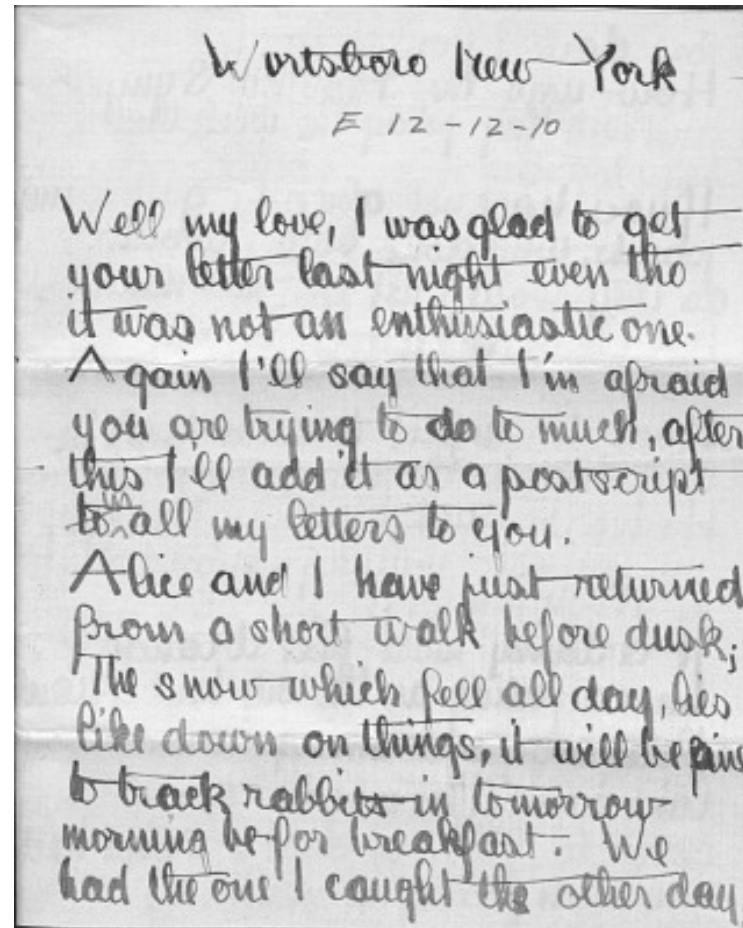 Wurtsboro New York
E 12-12-10
Well my love, I was glad to get
your letter last night even tho
it was not an enthusiastic one.
Again I'll say that I'm afraid
you are trying to do to much, after
this I'll add it as a postscript
to all my letters to you.
Alice and I have just returned
from a short walk before dusk;
The snow which fell all day, lies
like down on things, it will be fine
to track rabbits in tomorrow
morning befor breakfast. We
had the one I caught the other day